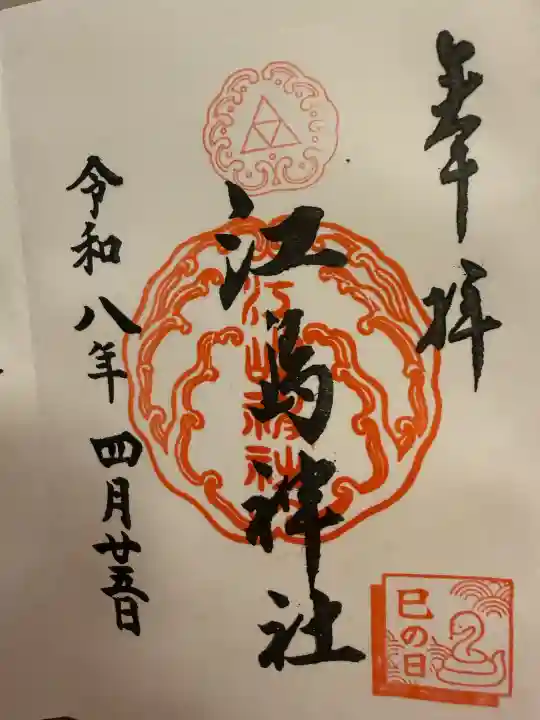 奉拝
江島神社
令和八年四月廿五日
巳の日